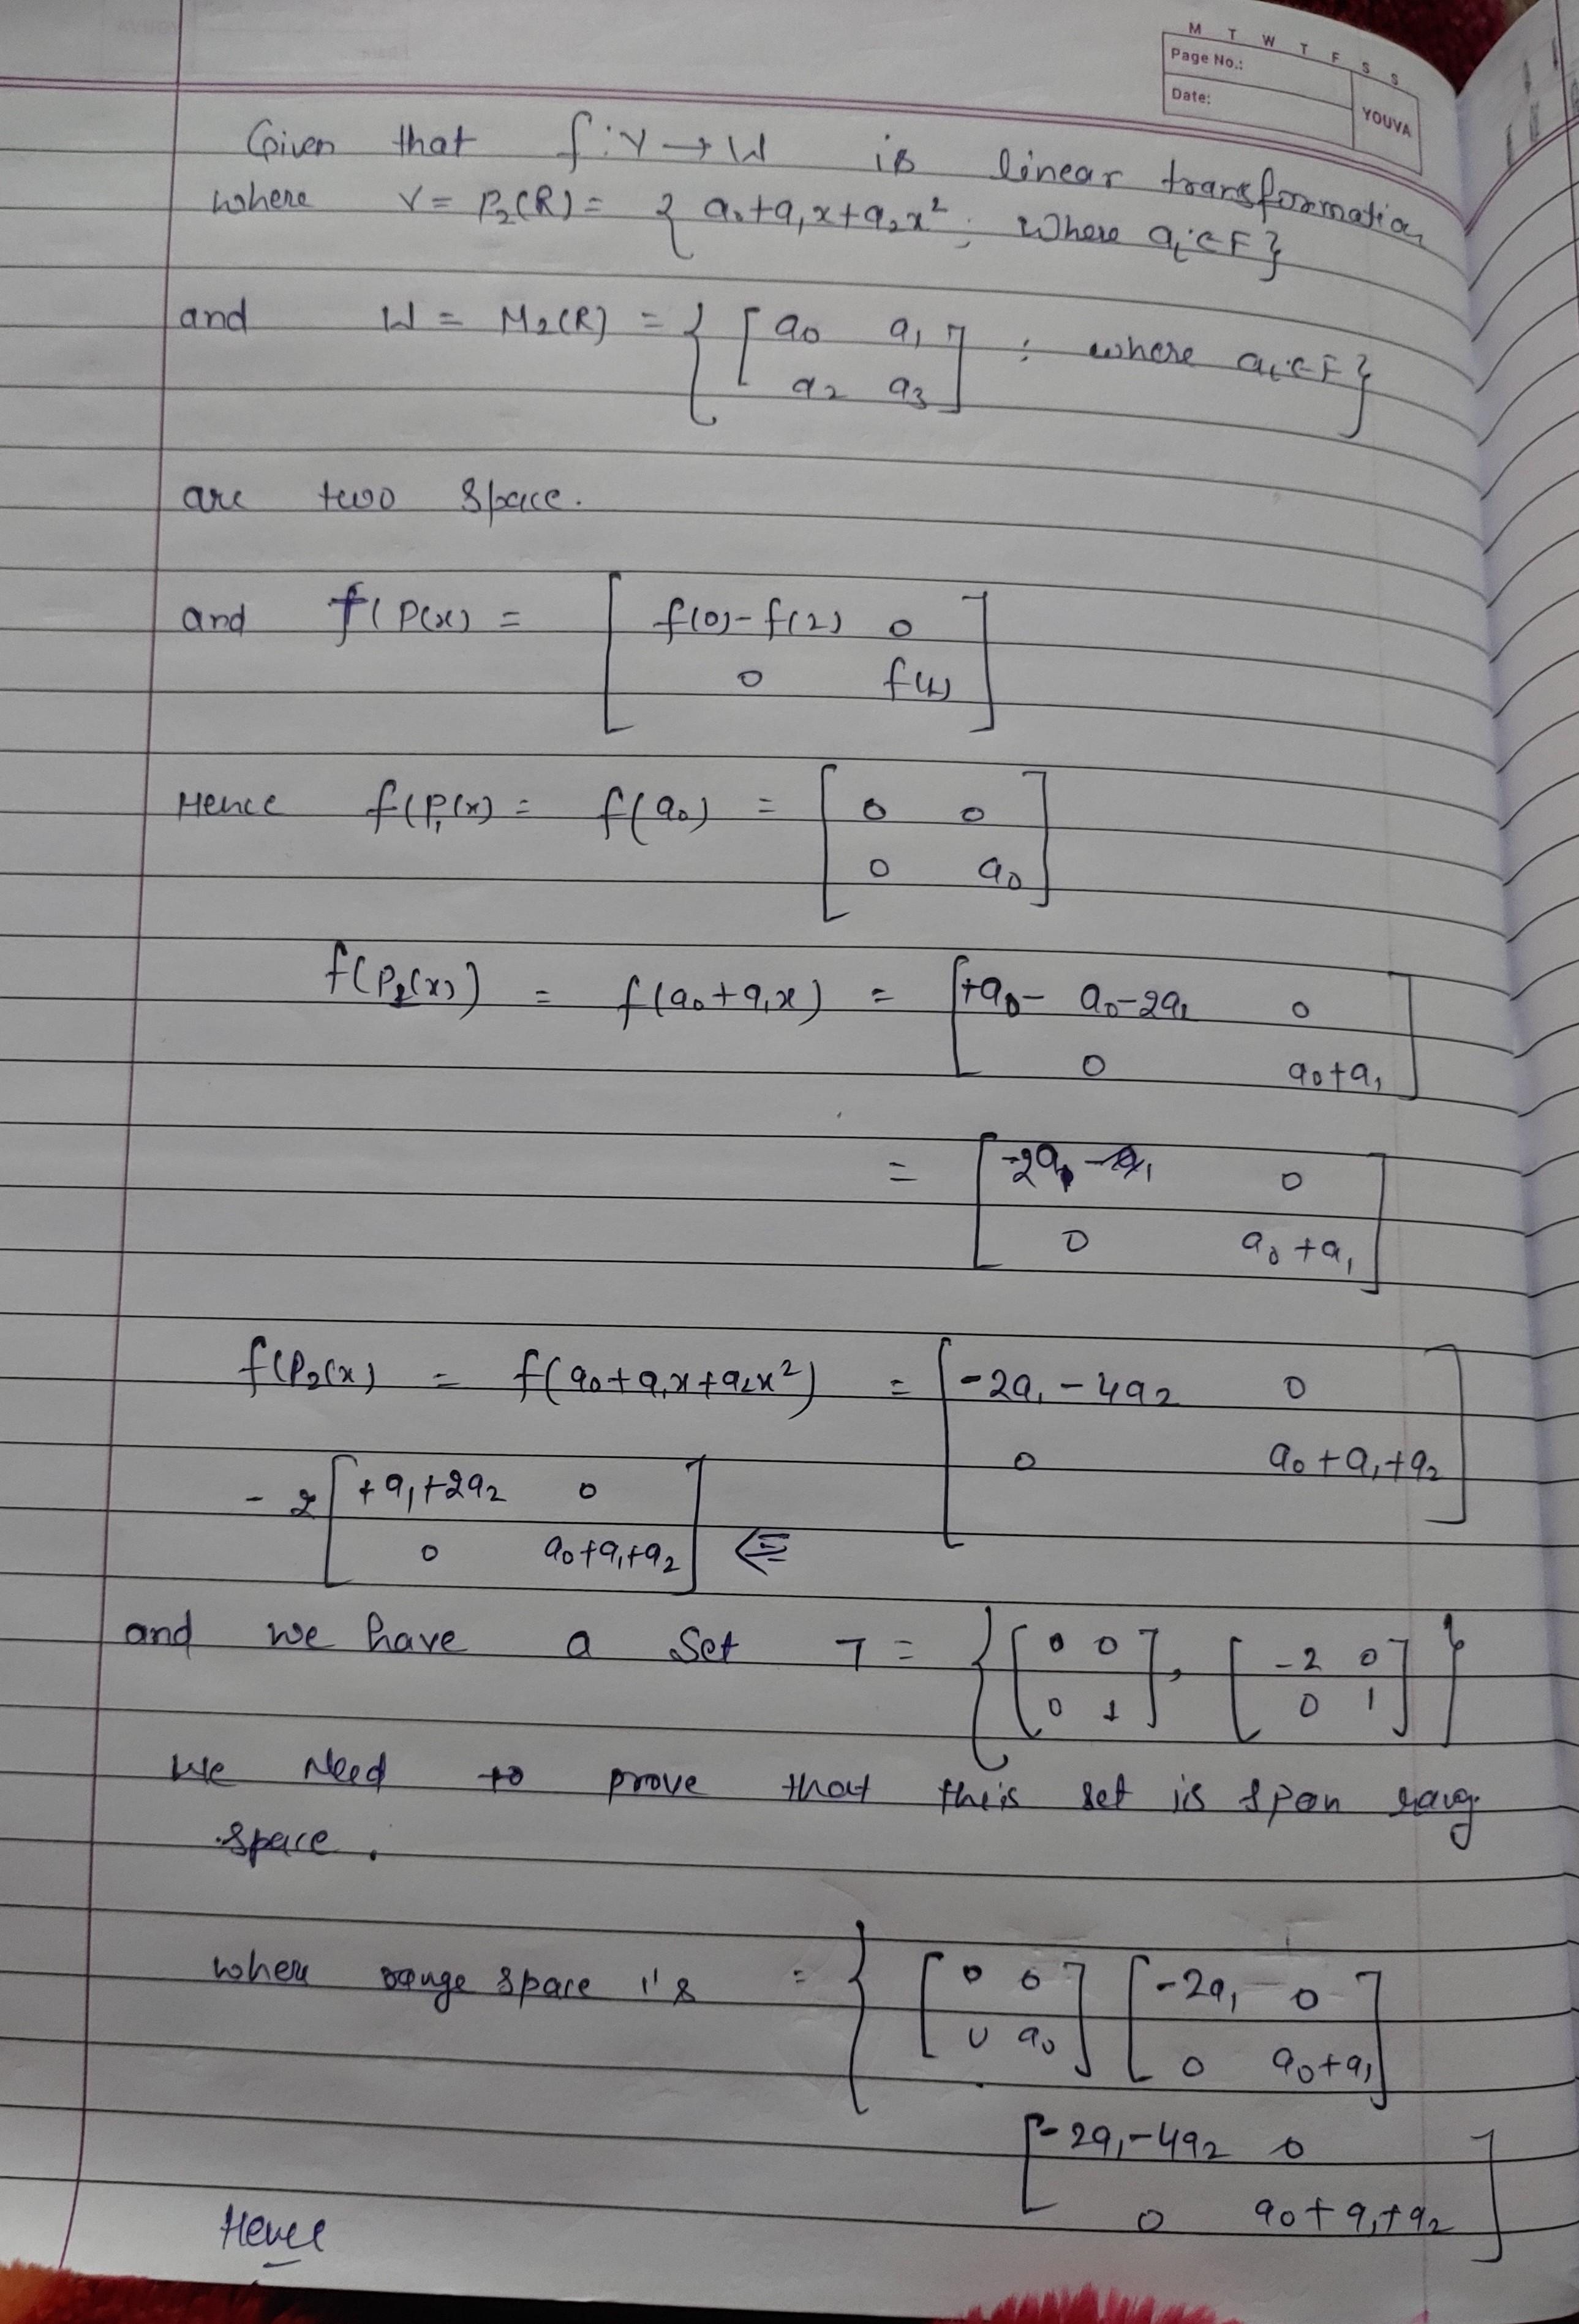 M T W T F S S
Page No.:
Date:
YOUVA
Given that f: V → W is linear transformation
where V = P₂(R) = { a₀+a₁x+a₂x² ; where aᵢ∈F }
and W = M₂(R) = { [ a₀ a₁ ; where aᵢ∈F }
a₂ a₃ ]
are two space.
and f(P(x) = [ f(0)-f(2) 0
0 f(1) ]
Hence f(P₁(x) = f(a₀) = [ 0 0
0 a₀ ]
f(P₂(x)) = f(a₀+a₁x) = [ +a₀- a₀-2a₁ 0
0 a₀+a₁ ]
= [ -2a₁ 0
0 a₀+a₁ ]
f(P₂(x) = f(a₀+a₁x+a₂x²) = [ -2a₁-4a₂ 0
0 a₀+a₁+a₂ ]
-2 [ +a₁+2a₂ 0
0 a₀+a₁+a₂ ]
and we have a set T = { [ 0 0 , [ -2 0 }
0 1 ] 0 1 ]
We Need to prove that this set is span rang
space.
where range space is = { [ 0 0 [ -2a₁ 0
0 a₀ ] 0 a₀+a₁ ]
[ -2a₁-4a₂ 0
0 a₀+a₁+a₂ ]
Hence